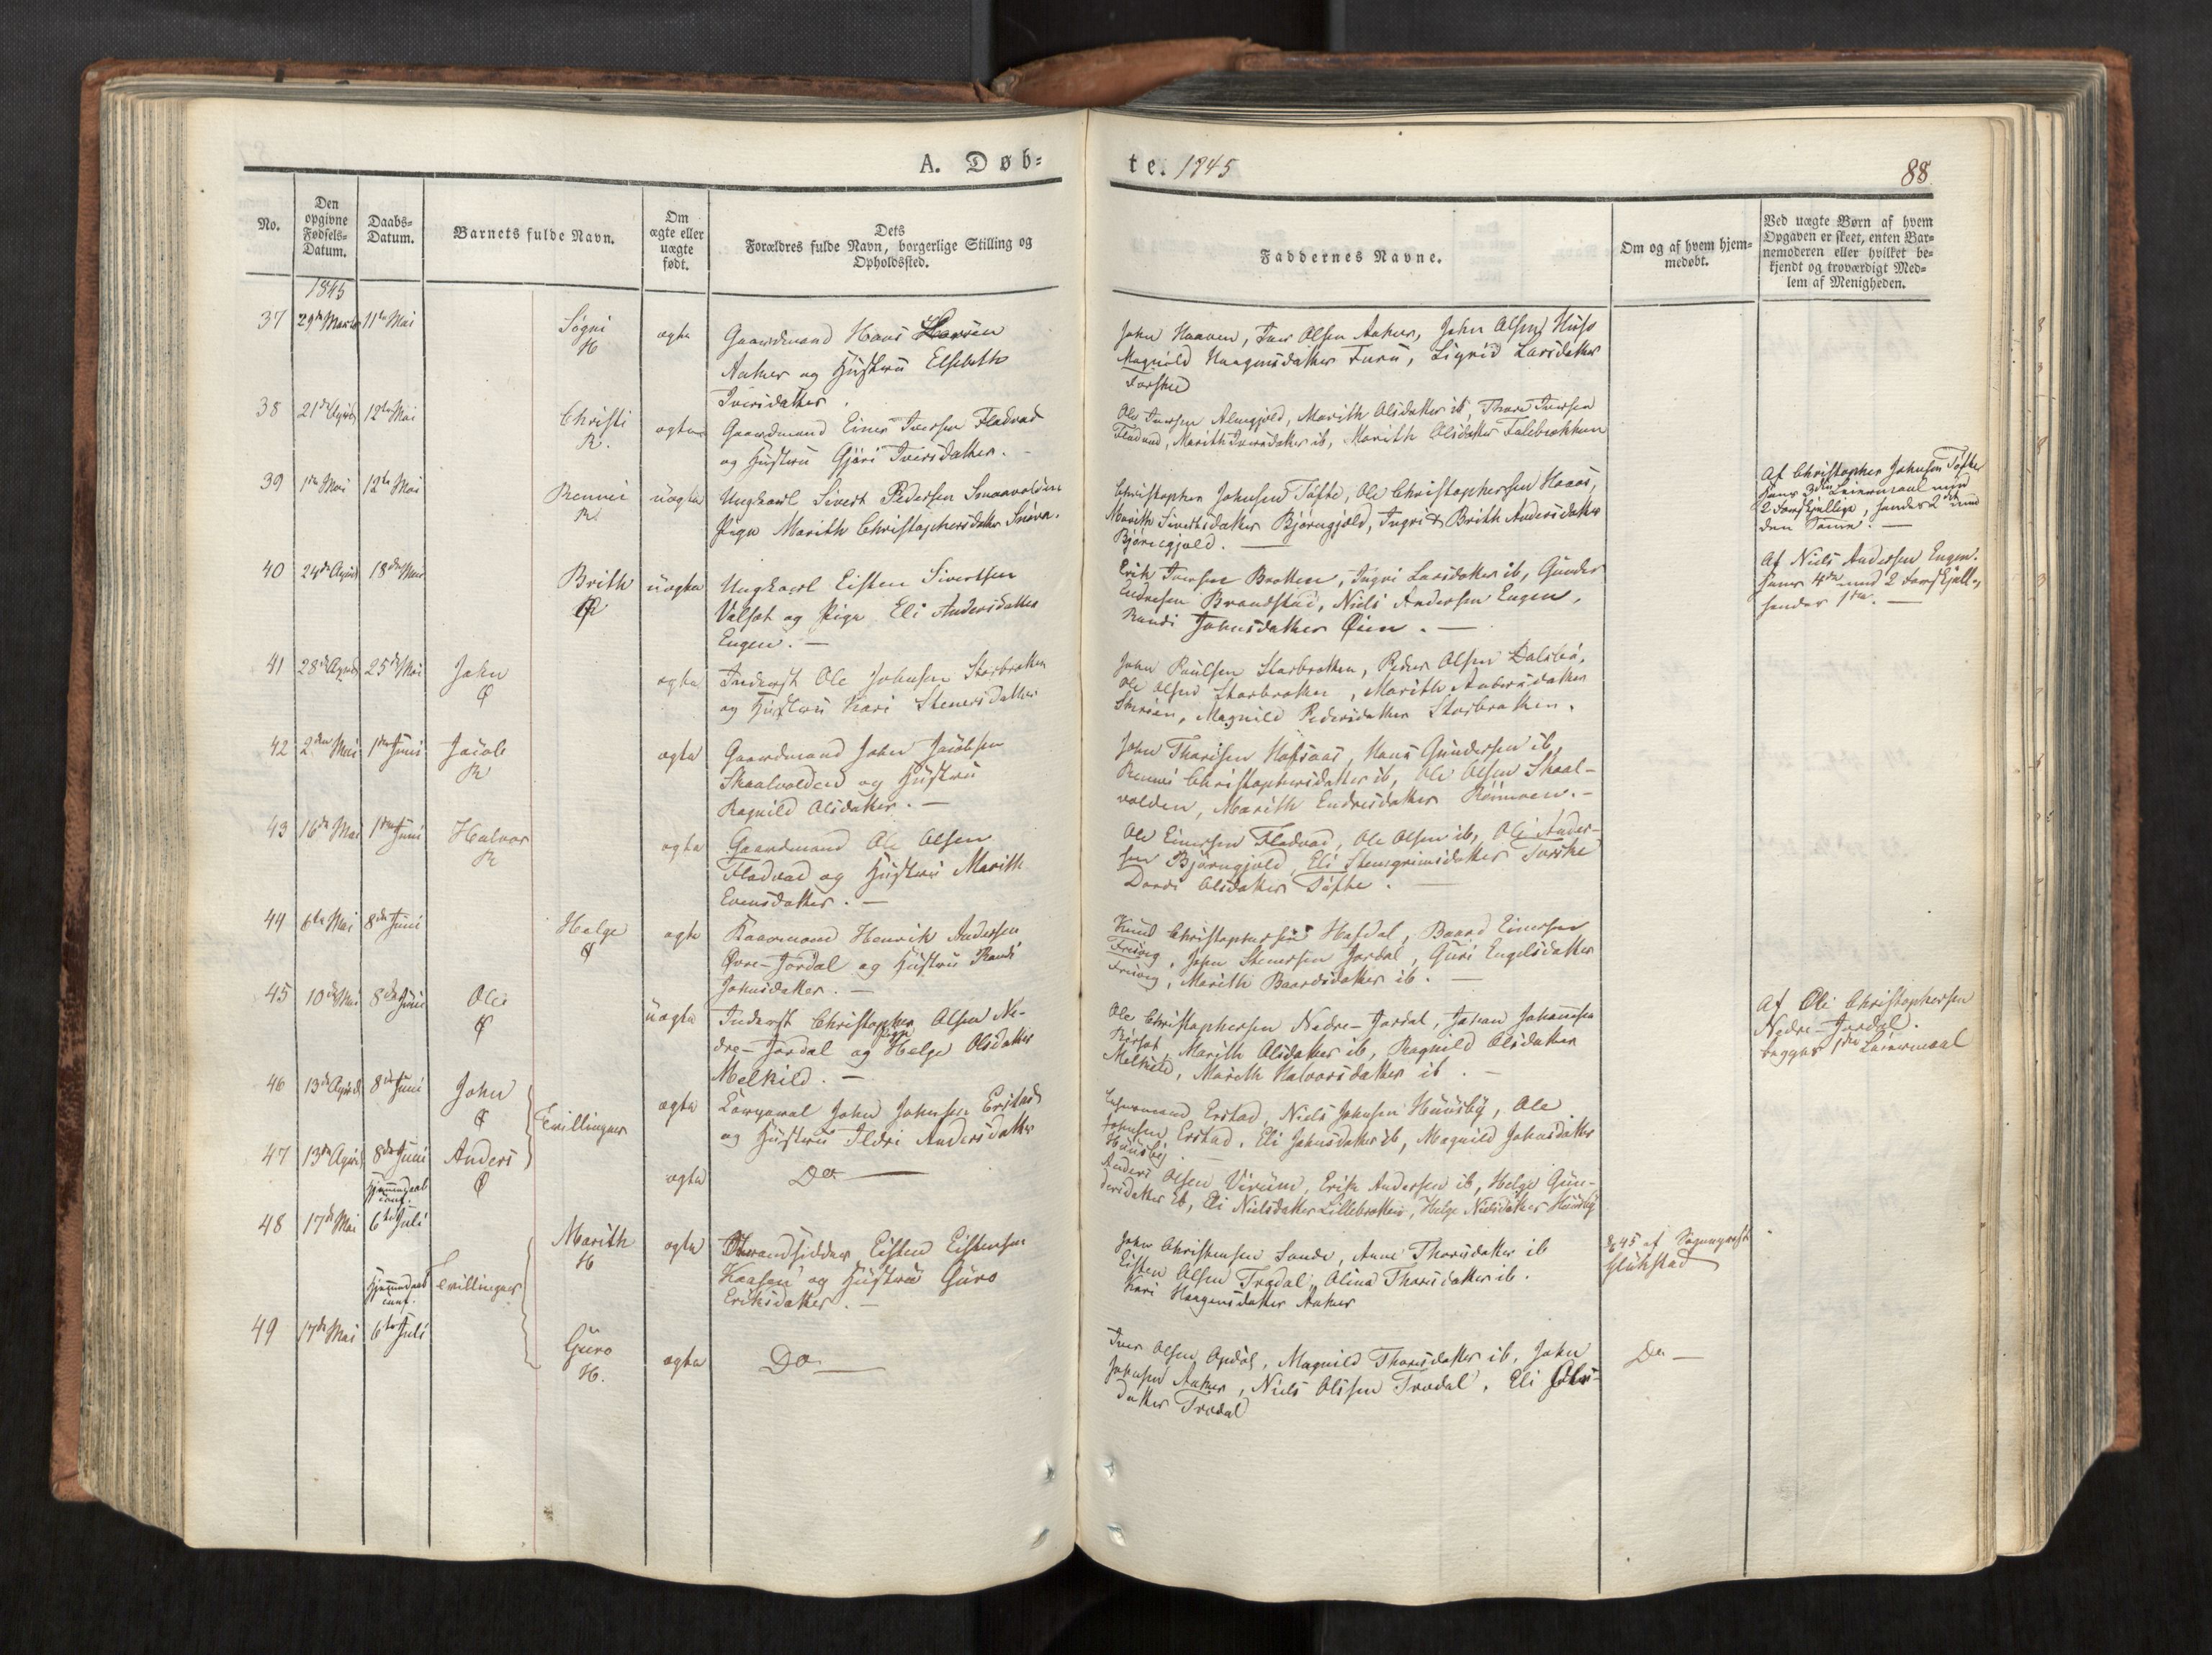 A. Døb=
te. 1845
88
No.
Den opgivne Fødsels= Datum.
Daabs= Datum.
Barnets fulde Navn.
Om ægte eller uægte født.
Dets Forældres fulde Navn, borgerlige Stilling og Opholdssted.
Faddernes Navne.
Om og af hvem hjem= medøbt.
Ved uægte Børn af hvem
Opgaven er skeet, enten Bar=
nemoderen eller hvilket be=
kjendt og troværdigt Med=
lem af Menigheden.
1845
37 29de Marts 11te Mai
H
ægte
Gaardmand Hans
Aaker og Hustru Elsebeth
Iversdatter.
John Haaven, Iver Olsen Aaker, John Olsen Huso
Magnild Haagensdatter Furu, Sigrid Larsdatter
Forske
38 21de April 12te Mai
Christi
R.
ægte
Gaardmand Einer Iversen Fladvad
og Hustru Gjøri Iversdatter.
Ole Iversen Almgjeld, Marith Olsdatter ib, Thore Iversen
Fladvad, Marith Iversdatter ib, Marith Olsdatter Falebrækken
39 1ste Mai 12te Mai
Rennei
R.
uægte
Ungkarl Sivert Pedersen
Pige Marith Christophersdatter Snøva.
Christopher Johnsen Tøfte, Ole Christophersen Haaas,
Marith Sivertsdatter Bjørngjeld, Ingri & Brith Andersdatter
Bjørngjeld. —
Af Christopher Johnsen Tøfte
Hans 3die Leiermaal med
2 forskjellige, hendes 2det med
den Samme. —
40 24de April 18de Mai
Brith
Ø
uægte
Ungkarl Eisten Sivertsen
Valset og Pige Eli Andersdatter
Engen. —
Erik Iversen Brotten, Ingri Larsdatter ib, Gunder
Endresen Brandstad, Niels Andersen Engen,
Randi Johnsdatter Øien. —
Af Niels Andersen Engen.
Hans 4de med 2 forskjell.,
hendes 1ste. —
41 28de April 25de Mai
John
Ø
ægte
Inderst Ole Johnsen Storbrotten
og Hustru Kari Stenersdatter
John Paulsen Storbrotten, Peder Olsen Dalsbø,
Ole Olsen Storbrotten, Marith Andersdatter
Magnild Pedersdatter Storbrotten.
42 2den Mai 1ste Juni
Jacob
R
ægte
Gaardmand John Jacobsen
Skaalvolden og Hustru
Ragnild Olsdatter. —
John Thoresen Hafsaas, Hans Gundersen ib,
Rennei Christophersdatter ib, Ole Olsen Skaal-
volden, Marith Endresdatter Rønmoen. —
43 16de Mai 1ste Juni
Halvor
R
ægte
Gaardmand Ole Olsen
Fladvad og Hustru Marith
Evensdatter. —
Ole Einersen Fladvad, Ole Olsen ib, Ole Ander-
sen Bjørngjeld, Eli Stenegrimsdatter Torske
Dordi Olsdatter Tøfte. —
44 6te Mai 8de Juni
Helge
Ø
ægte
Kaarmand Henrik Andersen
Øvre-Jordal og Hustru Randi
Johnsdatter. —
Knud Christophersen Hafdal, Baard Einersen
Frisvog, John Stenersen Jordal, Guri Engelsdatter
Frisvog, Marith Baardsdatter ib. —
45 10de Mai 8de Juni
Ole
Ø
uægte
Inderst Christopher Olsen Ne-
dre-Jordal og Pige Helge Olsdatter
Melkild. —
Ole Christophersen Nedre-Jordal, Johan Johannesen
Marith Olsdatter ib, Ragnild Olsdatter
Melkild, Marith Halvorsdatter ib. —
Af Ole Christophersen
Nedre-Jordal.
begges 1ste Leiermaal
46 13de April 8de Juni
John
Ø
Tvillinger
ægte
John Johnsen Erstad
og Hustru Ildri Andersdatter
Erstad, Niels Johnsen Huusby, Ole
Johnsen Erstad, Eli Johnsdatter ib, Magnild Johnsdatter
Huusby
47 13de April 8de Juni
Anders
Ø
ægte
Do —
Anders Olsen Virum, Erik Andersen ib, Helge Gun-
dersdatter ib, Eli Nielsdatter Lillebrotten, Helge Nielsdatter Huusby
Hjemmedøb
conf.
48 17de Mai 6te Juli
Marith
H
Tvillinger
ægte
Strandsidder Eisten Eistensen
Kaasen og Hustru Guro
Eriksdatter. —
John Christensen Sande, Anne Thoresdatter ib
Eisten Olsen Trædal, Olina Thoresdatter ib.
Kari Haagensdatter Aaker
Glükstad
Hjemmedøb
conf.
49 17de Mai 6te Juli
Guro
H.
ægte
Do —
Iver Olsen Opdøl, Magnild Thoresdatter ib, John
Johnsen Aaker, Niels Olssen Trædal, Eli
datter Trædal
Do —